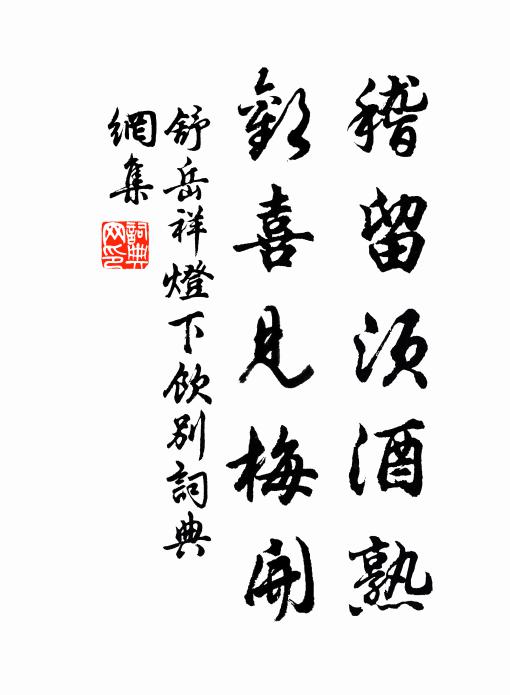 稽留須酒熟
歡喜見梅開
舒岳祥燈下飲別詞典
網集
詞典
网印